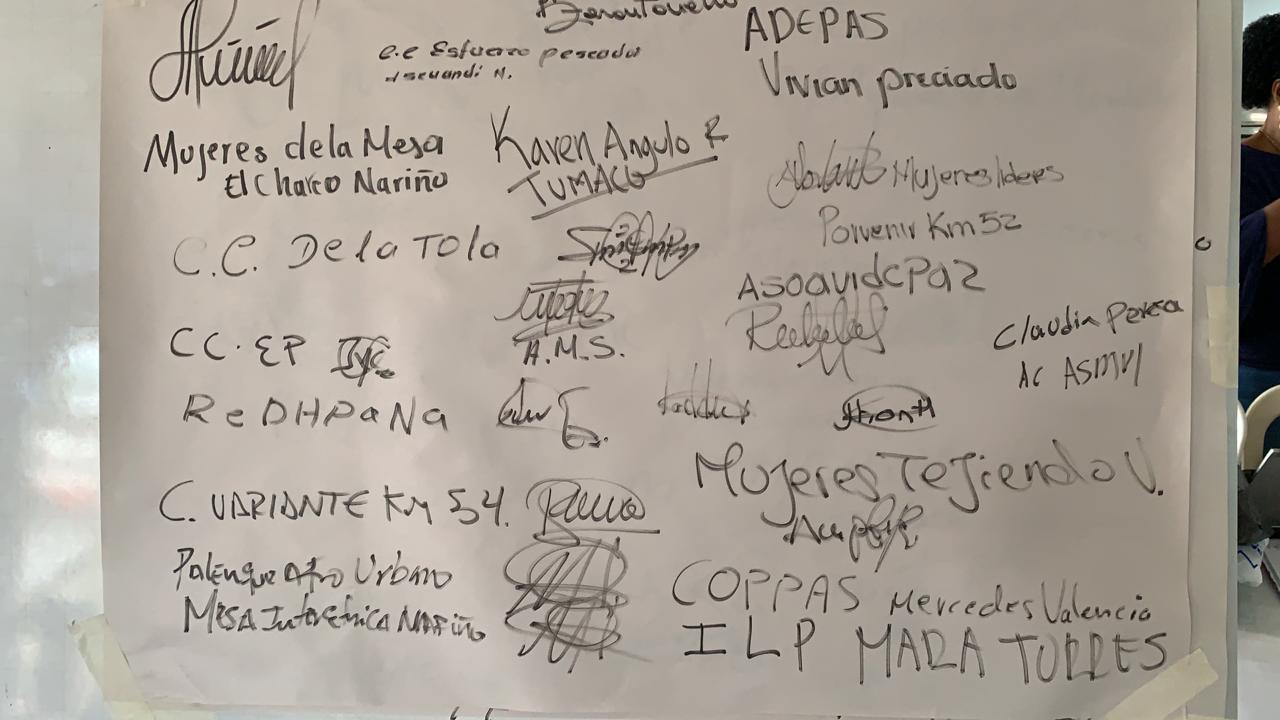 ADEPAS
c.c Esfuerzo pescador
Iscuandí N.
Vivian preciado
Mujeres dela Mesa
El Charco Nariño
Karen Angulo R
TUMACO
Mujeres lideres
Porvenir Km 52
C.C. De la TOla
ASOavidePaz
CC. EP
A.M.S.
Claudia Perea
AC ASMVI
ReDHPaNa
Jhon H
Mujeres TeJiendo V.
C. VARIANTE KM 54.
Palenque Afro Urbano
MESA Interétnica NARIño
COPPAS Mercedes Valencia
ILP MARA TORRES